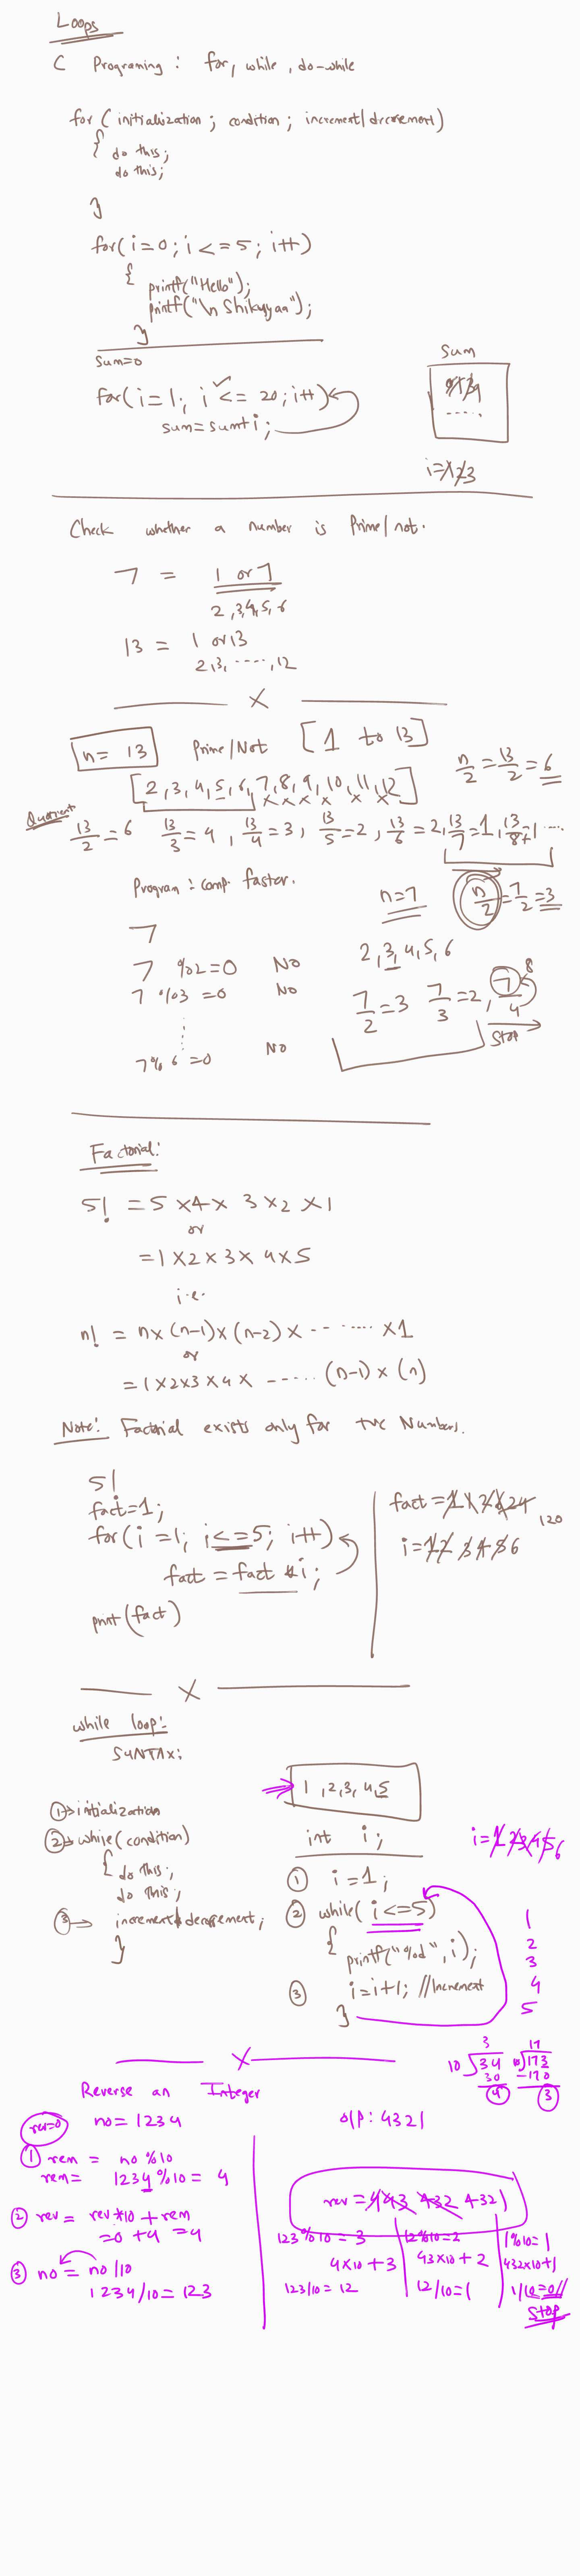 Loops
C Programing : for, while, do-while
for ( initialization ; condition ; increment/decrement)
{ do this;
do this;
}
for(i=0; i<=5; i++)
{ printf("Hello");
printf("\n Shikugyan");
}
sum=0
for(i=1; i<=20; i++)
sum=sum+i;
Sum
.....
i=1 2 3
Check whether a number is Prime/not.
7 = 1 or 7
2,3,4,5,6
13 = 1 or 13
2,3, ....,12
X
n= 13 Prime/Not [1 to 13]
n/2 = 13/2 = 6
[2,3,4,5,6,7,8,9,10,11,12]
x x x x x x
Quotient 13/2=6 13/3=4, 13/4=3, 13/5=2, 13/6=2, 13/7=1, 13/8=1 ....
Program : comp. faster. n=7 n/2=7/2=3
7
2,3,4,5,6
7 %2=0 No
7 %3=0 No
7/2=3 7/3=2, 7/4 8
Stop
7%6=0 No
Factorial:
5! = 5 x4 x 3 x2 x1
or
=1 x2 x 3 x 4 x 5
i.e.
n! = nx (n-1)x (n-2) x ........ x1
or
=1x2x3x4x ..... (n-1) x (n)
Note: Factorial exists only for +ve Numbers.
5!
fact=1;
for(i=1; i<=5; i++)
fact = fact *i;
print(fact)
fact = 1 1 2 6 24 120
i=1 2 3 4 5 6
X
while loop:
SYNTAX:
① → initialization
② → while(condition)
{ do this;
do this;
③ → increment/decrement;
}
1,2,3,4,5
int i;
① i=1;
② while(i<=5)
{
printf("%d",i);
③ i=i+1; //Increment
}
i=1 2 3 4 5 6
1
2
3
4
5
X
Reverse an Integer
3
10 √34
30
4
17
10 √173
-170
3
rev=0 no= 1234 o/p: 4321
① rem = no %10
rem= 1234 %10 = 4
② rev= rev*10 + rem
=0 +4 =4
③ no = no /10
1234/10= 123
rev =4 43 432 4321
123%10=3
4x10+3
123/10=12
12%10=2
43x10+2
12/10=1
1%10=1
432x10+1
1/10=0//
Stop